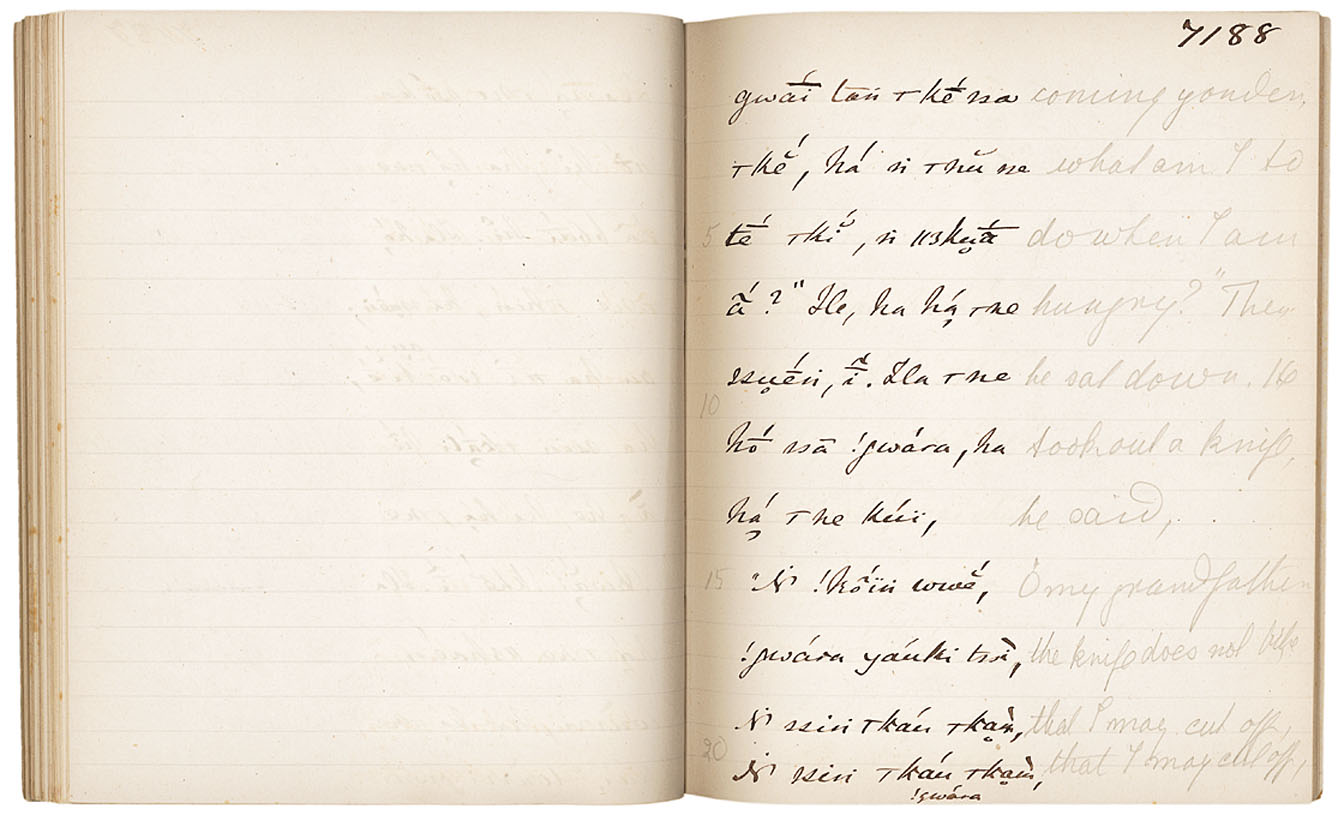 7188
gwā́ī tau ɬké ssa coming yonder,
ɬkĕ́, há si ɬnŭ se what am I to
5 tḗ ɬkĭ́, si do when I am
ā́?" He, ha há̰ ɬne hungry?" Then
ssuḗn, ī. Ha ɬne he sat down. He
10
hṓ ssā !gwára, ha took out a knife,
há̰ ɬne kúï, he said,
15 "Ń !kṓïn wwĕ́, O my grandfather
!gwára yáuki tssì, the knife does not bite
Ń ssin ɬkáu ɬka̰m̀, that I may cut off,
20 Ń ssin ɬkáu ɬka̰m̀, that I may cut off,
!gwára